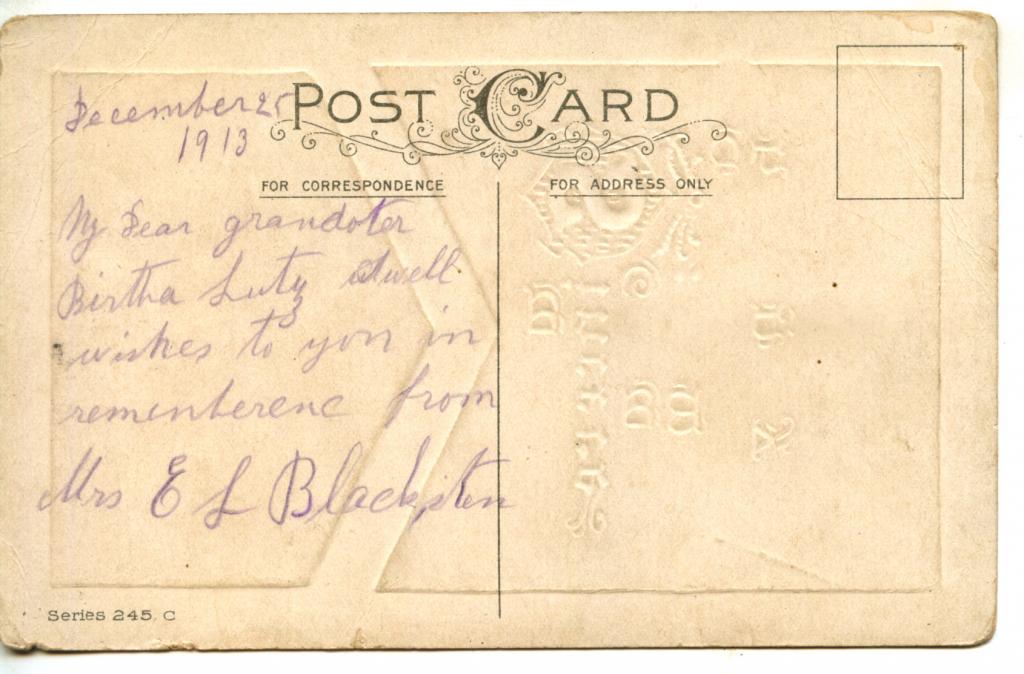 December 25
1913
POST CARD
FOR CORRESPONDENCE
FOR ADDRESS ONLY
My Dear grandoter
Birtha Lutz
wishes to you in
rememberenc from
Mrs E L Blacksten
Series 245. C